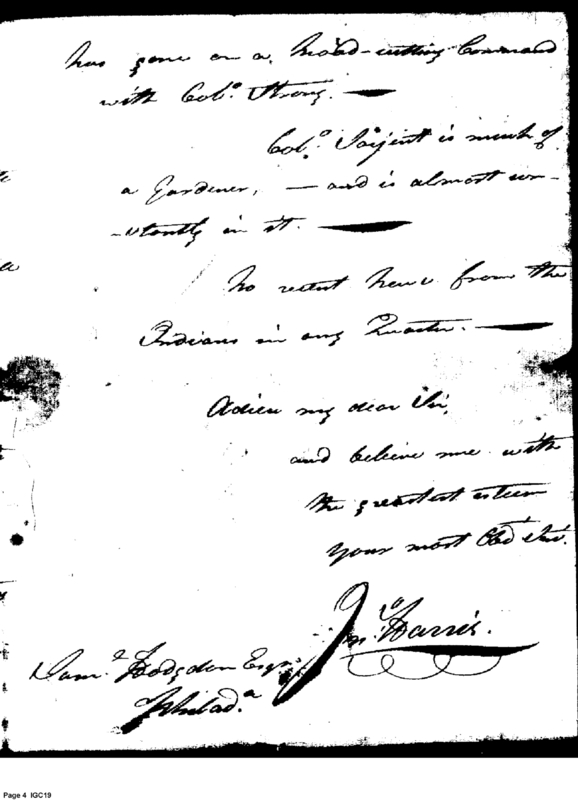 has gone on a Road-cutting Command
with Colo. Strong. —
Colo. Sarjent is much of
a Gardener, — and is almost con-
-stantly in it. —
No recent news from the
Indians in any Quarter. —
Adieu my dear Sir,
and believe me with
the greatest esteem
Your most Obdt Servt.
Jno. Harris.
Saml. Hodgdon Esqr.
Philada.
Page 4 IGC19